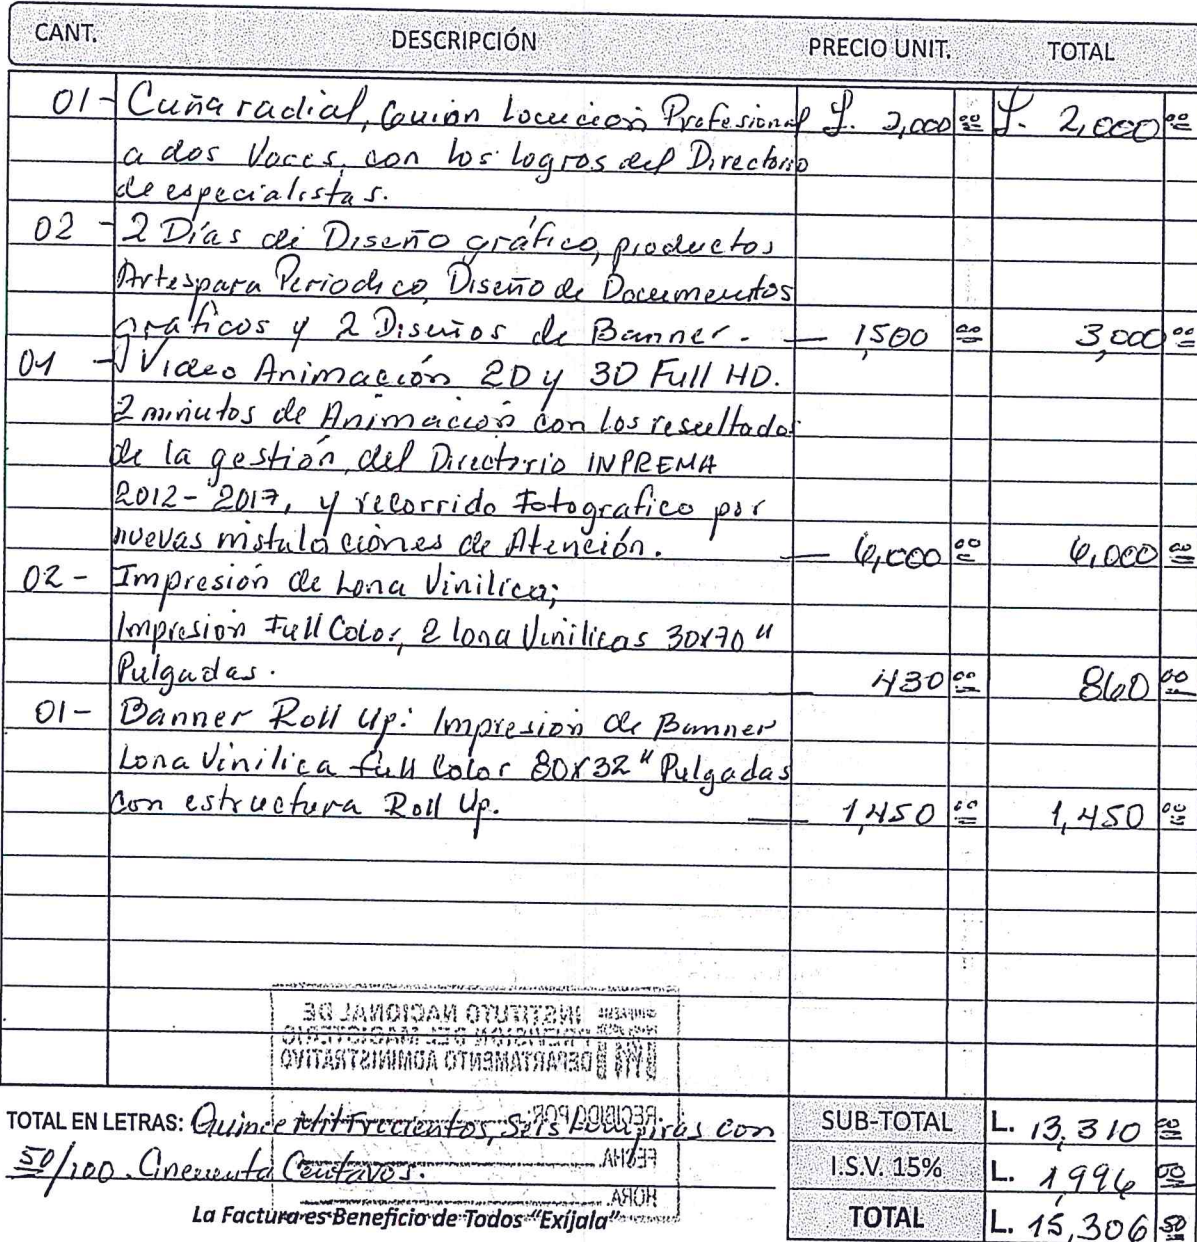 CANT. DESCRIPCIÓN PRECIO UNIT. TOTAL
01- Cuña radial, Guion Locución Profesional L. 2,000 00 L. 2,000 00
a dos Voces, con los logros del Directorio
de especialistas.
02 - 2 Días de Diseño gráfico, productos
Artes para Periodico, Diseño de Documentos
gráficos y 2 Diseños de Banner. — 1,500 00 3,000 00
01 - Video Animación 2D y 3D Full HD.
2 minutos de Animación con los resultados
de la gestión del Directorio INPREMA
2012-2017, y recorrido fotografico por
nuevas instalaciones de Atención. — 6,000 00 6,000 00
02 - Impresión de Lona Vinilica;
Impresión Full Color, 2 lona Vinilicas 30x70"
Pulgadas. — 430 00 860 00
01- Banner Roll Up: Impresión de Banner
Lona Vinilica full Color 80x32" Pulgadas
con estructura Roll Up. — 1,450 00 1,450 00
INSTITUTO NACIONAL DE
PREVISION DEL MAGISTERIO
DEPARTAMENTO ADMINISTRATIVO
RECIBIDO POR:
FECHA
HORA
TOTAL EN LETRAS: Quince Mil Trecientos, Seis Lempiras con
50/100 Cincuenta Centavos.
La Factura es Beneficio de Todos "Exíjala"
SUB-TOTAL L. 13,310 00
I.S.V. 15% L. 1,996 50
TOTAL L. 15,306 50